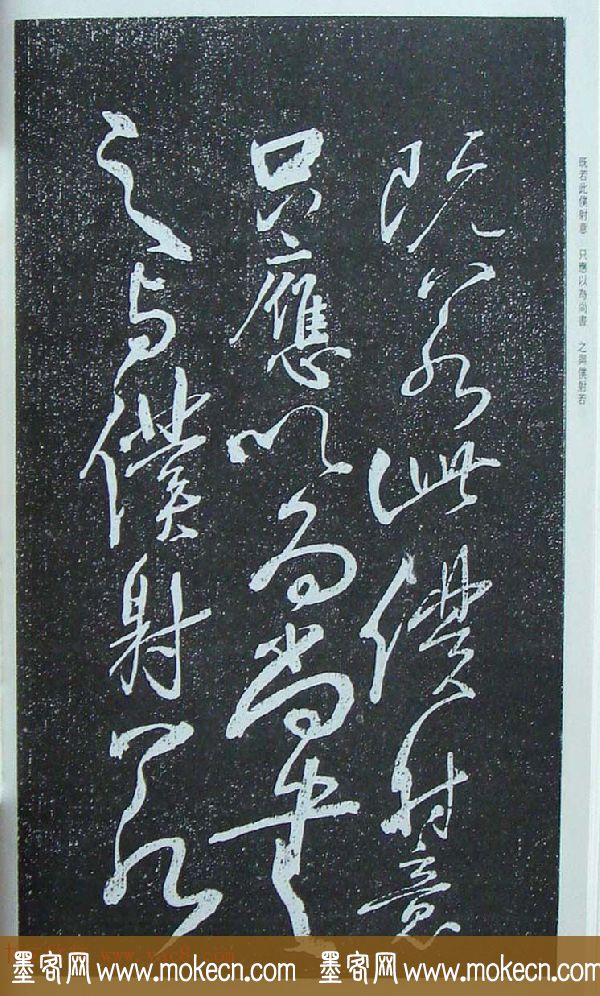 既若此僕射意
只應以為尚書
之與僕射若
既若此僕射意 只應以為尚書 之與僕射若
墨客网 www.mokecn.com 墨客网 www.mokecn.com